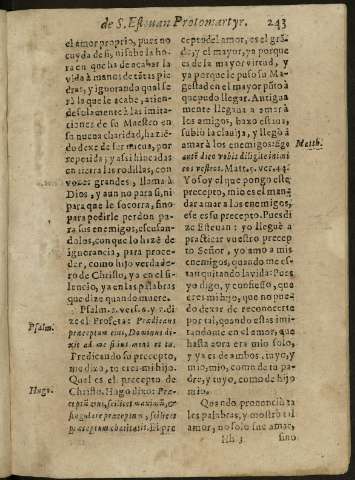 de S. Estevan Protomartyr. 243
el amor proprio, pues no
cuyda de si, ni sabe la ho-
ra en que ha de acabar la
vida à manos de tãtas pie
dras, y ignorando qual se
rà la que le acabe, atien-
de solamente à las imita-
ciones de su Maestro en
su nueva charidad, hazié-
do dexe de ser nueva, por
repetida; y assi hincadas
en tierra las rodillas, con
vozes grandes, llama à
Dios, y aun no para sí, ni
para que le socorra, sino
para pedirle perdon pa-
ra sus enemigos, escusan-
dalos, con que lo hazẽ de
ignorancia, para proce-
der, como hijo verdade-
ro de Christo, ya en el si-
lencio, ya en las palabras
que dize quando muere.
Psalm. 2. vers. 6. y 7. di-
Psalm.
ze el Profeta: Prædicans
præceptum eius, Dominus di-
xit ad me filius meus es tu.
Predicando su precepto,
me dixo, tu eres mi hijo.
Qual es el precepto de
Hugo.
Christo, Hugo dixo: Præ-
ceptũ eius, scilicet maximũ, &
singulare præceptum, scilicet
præceptum charitatis. El pre
cepto del amor, es el grã-
de, y el mayor, ya porque
es de la mayor virtud, y
ya porque le puso su Ma-
gestad en el mayor pũto à
que pudo llegar. Antigua
mente llegava a amar à
los amigos, baxo estava,
subiò la clavija, y llegò à
amar à los enemigos: Ego
Matth.
autẽ dico vobis diligite inimi
cos vestros. Matt. 5. ver. 44.
Yo soy el que pongo este
precepto, mio es el man-
dar amar à los enemigos,
ese es su precepto. Pues di
ze Estevan: yo lleguè à
practicar vuestro precep
to Señor, yo amo a mis
enemigos, quando me es-
tan quitando la vida: Pues
yo digo, y confiesso, que
eres mi hijo, que no pue-
do dexar de reconocerte
por tal, quando estas imi-
tandome en el amor, que
hasta aora era mio solo,
y ya es de ambos, tuyo, y
mio, mio, como de tu pa-
dre, y tuyo, como de hijo
mio.
Quando pronunciò ta
les palabras, y mostrò tal
amor, no solo fue amar,
Hh 3 sino